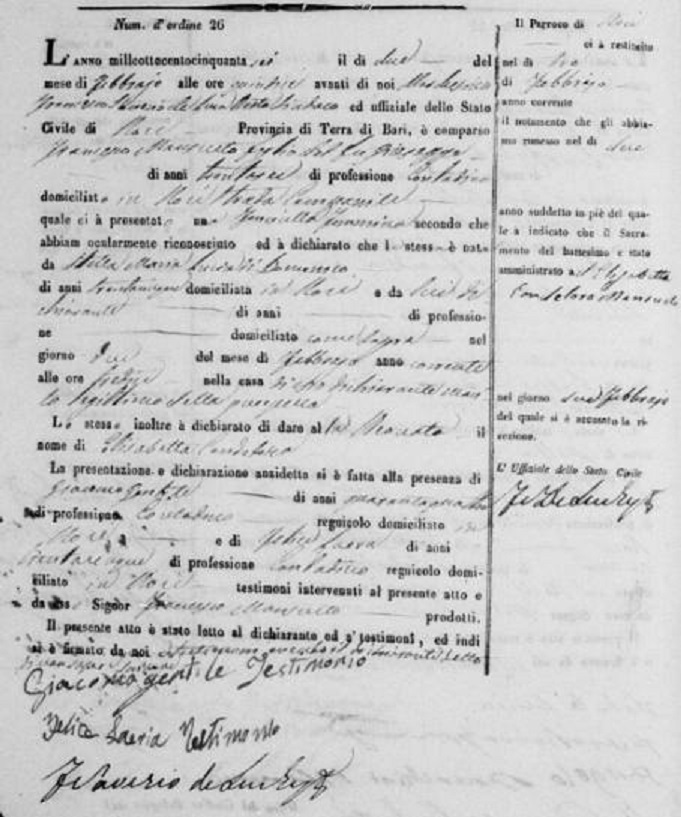 Num. d'ordine 26
L'ANNO millottocentocinquanta sei il di due del
mese di Febbrajo alle ore quindici avanti di noi
ed uffiziale dello Stato
Civile di Noci Provincia di Terra di Bari, è comparso
Francesco Mansueto figlio del fu Giuseppe
di anni trentasei di professione Contadino
domiciliato in Noci Strada Campanile
quale ci à presentato una Fanciulla Femmina secondo che
abbiam ocularmente riconosciuto ed à dichiarato che la stessa è nata
da Stella Maria Lucia di Domenico
di anni domiciliata in Noci e da lui di
chiarante di anni di professio-
ne domiciliato come sopra nel
giorno due del mese di Febbrajo anno corrente
alle ore tredici nella casa di esso dichiarante mari
to legittimo della
Lo stesso inoltre à dichiarato di dare alla Neonata il
nome di Elisabetta Candelora
La presentazione e dichiarazione anzidetta si è fatta alla presenza di
Giacomo Gentile di anni quarantaquattro
di professione Contadino regnicolo domiciliato in
Noci e di Felice Laera di anni
trentacinque di professione Contadino regnicolo domi-
ciliato in Noci testimoni intervenuti al presente atto e
da esso Signor Francesco Mansueto prodotti.
Il presente atto è stato letto al dichiarante ed a' testimoni, ed indi
si è firmato da noi
Giacomo Gentile Testimonio
Felice Laera Testimonio
F. Saverio de Luca
Il Parroco di Noci
ci à restituito
nel di due
di Febbrajo
anno corrente
il notamento che gli abbia-
mo rimesso nel di due
anno suddetto in piè del qua-
le à indicato che il Sacra-
mento del battesimo è stato
amministrato a Elisabetta
Candelora Mansueto
nel giorno due Febbrajo
del quale si è accusato la ri-
cezione.
L' Uffiziale dello Stato Civile